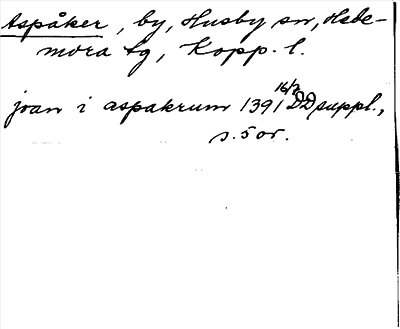 Aspåker, by, Husby sn, Hede-
mora tg, Kopp. l.
joan i aspakrum 1391 16/2 DD suppl.,
s. 5 or.